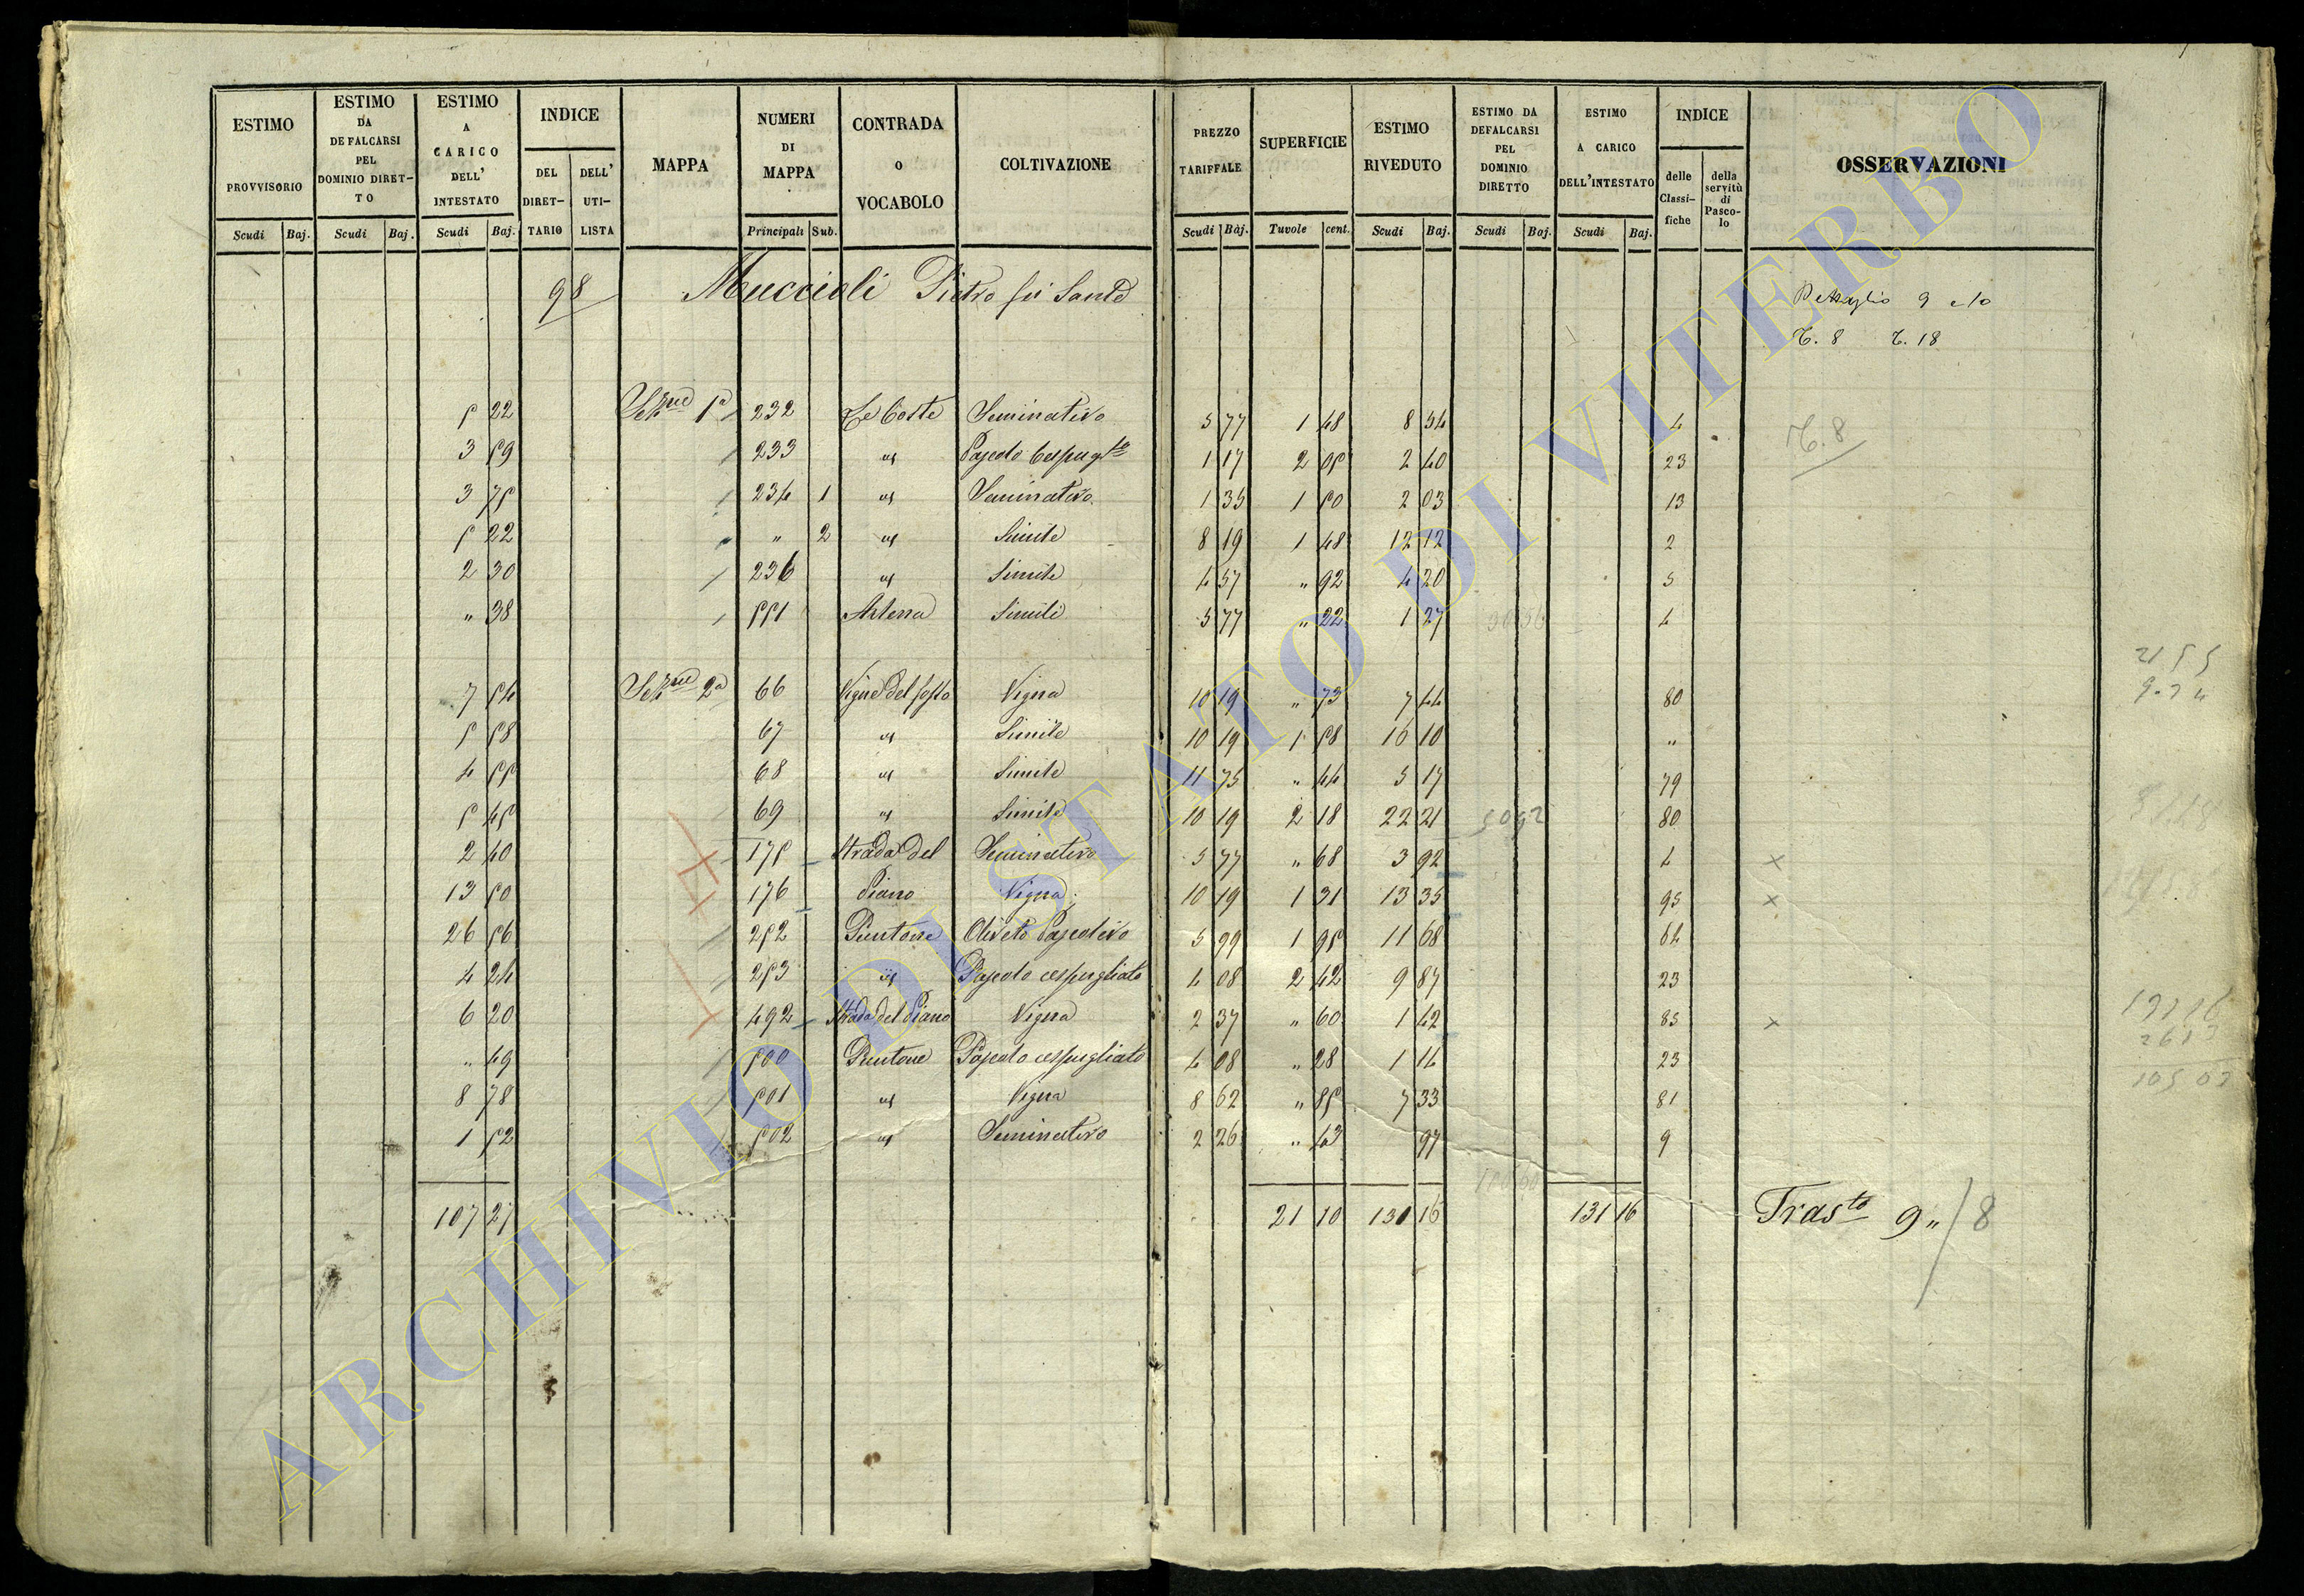 ESTIMO PROVVISORIO | ESTIMO DA DEFALCARSI PEL DOMINIO DIRET-TO | ESTIMO A CARICO DELL' INTESTATO | INDICE DEL DIRET-TARIO | DELL' UTI-LISTA | MAPPA | NUMERI DI MAPPA | CONTRADA o VOCABOLO | COLTIVAZIONE | PREZZO TARIFFALE | SUPERFICIE | ESTIMO RIVEDUTO | ESTIMO DA DEFALCARSI PEL DOMINIO DIRETTO | ESTIMO A CARICO DELL'INTESTATO | INDICE delle Classi-fiche | della servitù di Pasco-lo | OSSERVAZIONI
Scudi Baj. | Scudi Baj. | Scudi Baj. | Principali Sub. | Scudi Baj. | Tuvole cent. | Scudi Baj. | Scudi Baj. | Scudi Baj.
98 Muccioli Pietro fu Sante
9 e 10
T. 8 T. 18
5 22 Sezne 1a 232 Le Coste Seminativo 5 77 1 48 8 54 4 T. 8
3 59 233 id Pascolo Cespugto 1 17 2 05 2 40 23
3 75 234 1 id Seminativo 1 35 1 50 2 03 13
5 22 " 2 id Simile 8 19 1 48 12 12 2
2 30 236 id Simile 4 57 " 92 4 20 5
" 38 551 Simile 5 77 " 22 1 27 4
7 54 Sezne 2a 66 Vigne del fosso Vigna 10 19 " 73 7 44 80
5 58 67 id Simile 10 19 1 58 16 10 "
4 55 68 id Simile 11 75 " 44 5 17 79
5 45 69 id Simile 10 19 2 18 22 21 80
2 40 175 Strada del Seminativo 5 77 " 68 3 92 4 x
13 50 176 Piano Vigna 10 19 1 31 13 35 95 x
26 56 252 Puntone Oliveto Pascolivo 5 99 1 95 11 68 64
4 24 253 id Pascolo cespugliato 4 08 2 42 9 87 23
6 20 492 Strada del Piano Vigna 2 37 " 60 1 42 85 x
" 49 500 Puntone Pascolo cespugliato 4 08 " 28 1 14 23
8 78 501 id Vigna 8 62 " 85 7 33 81
1 52 502 id Seminativo 2 26 " 43 97 9
107 27 21 10 131 16 131 16 Trasto 9 " / 8
ARCHIVIO DI STATO DI VITERBO